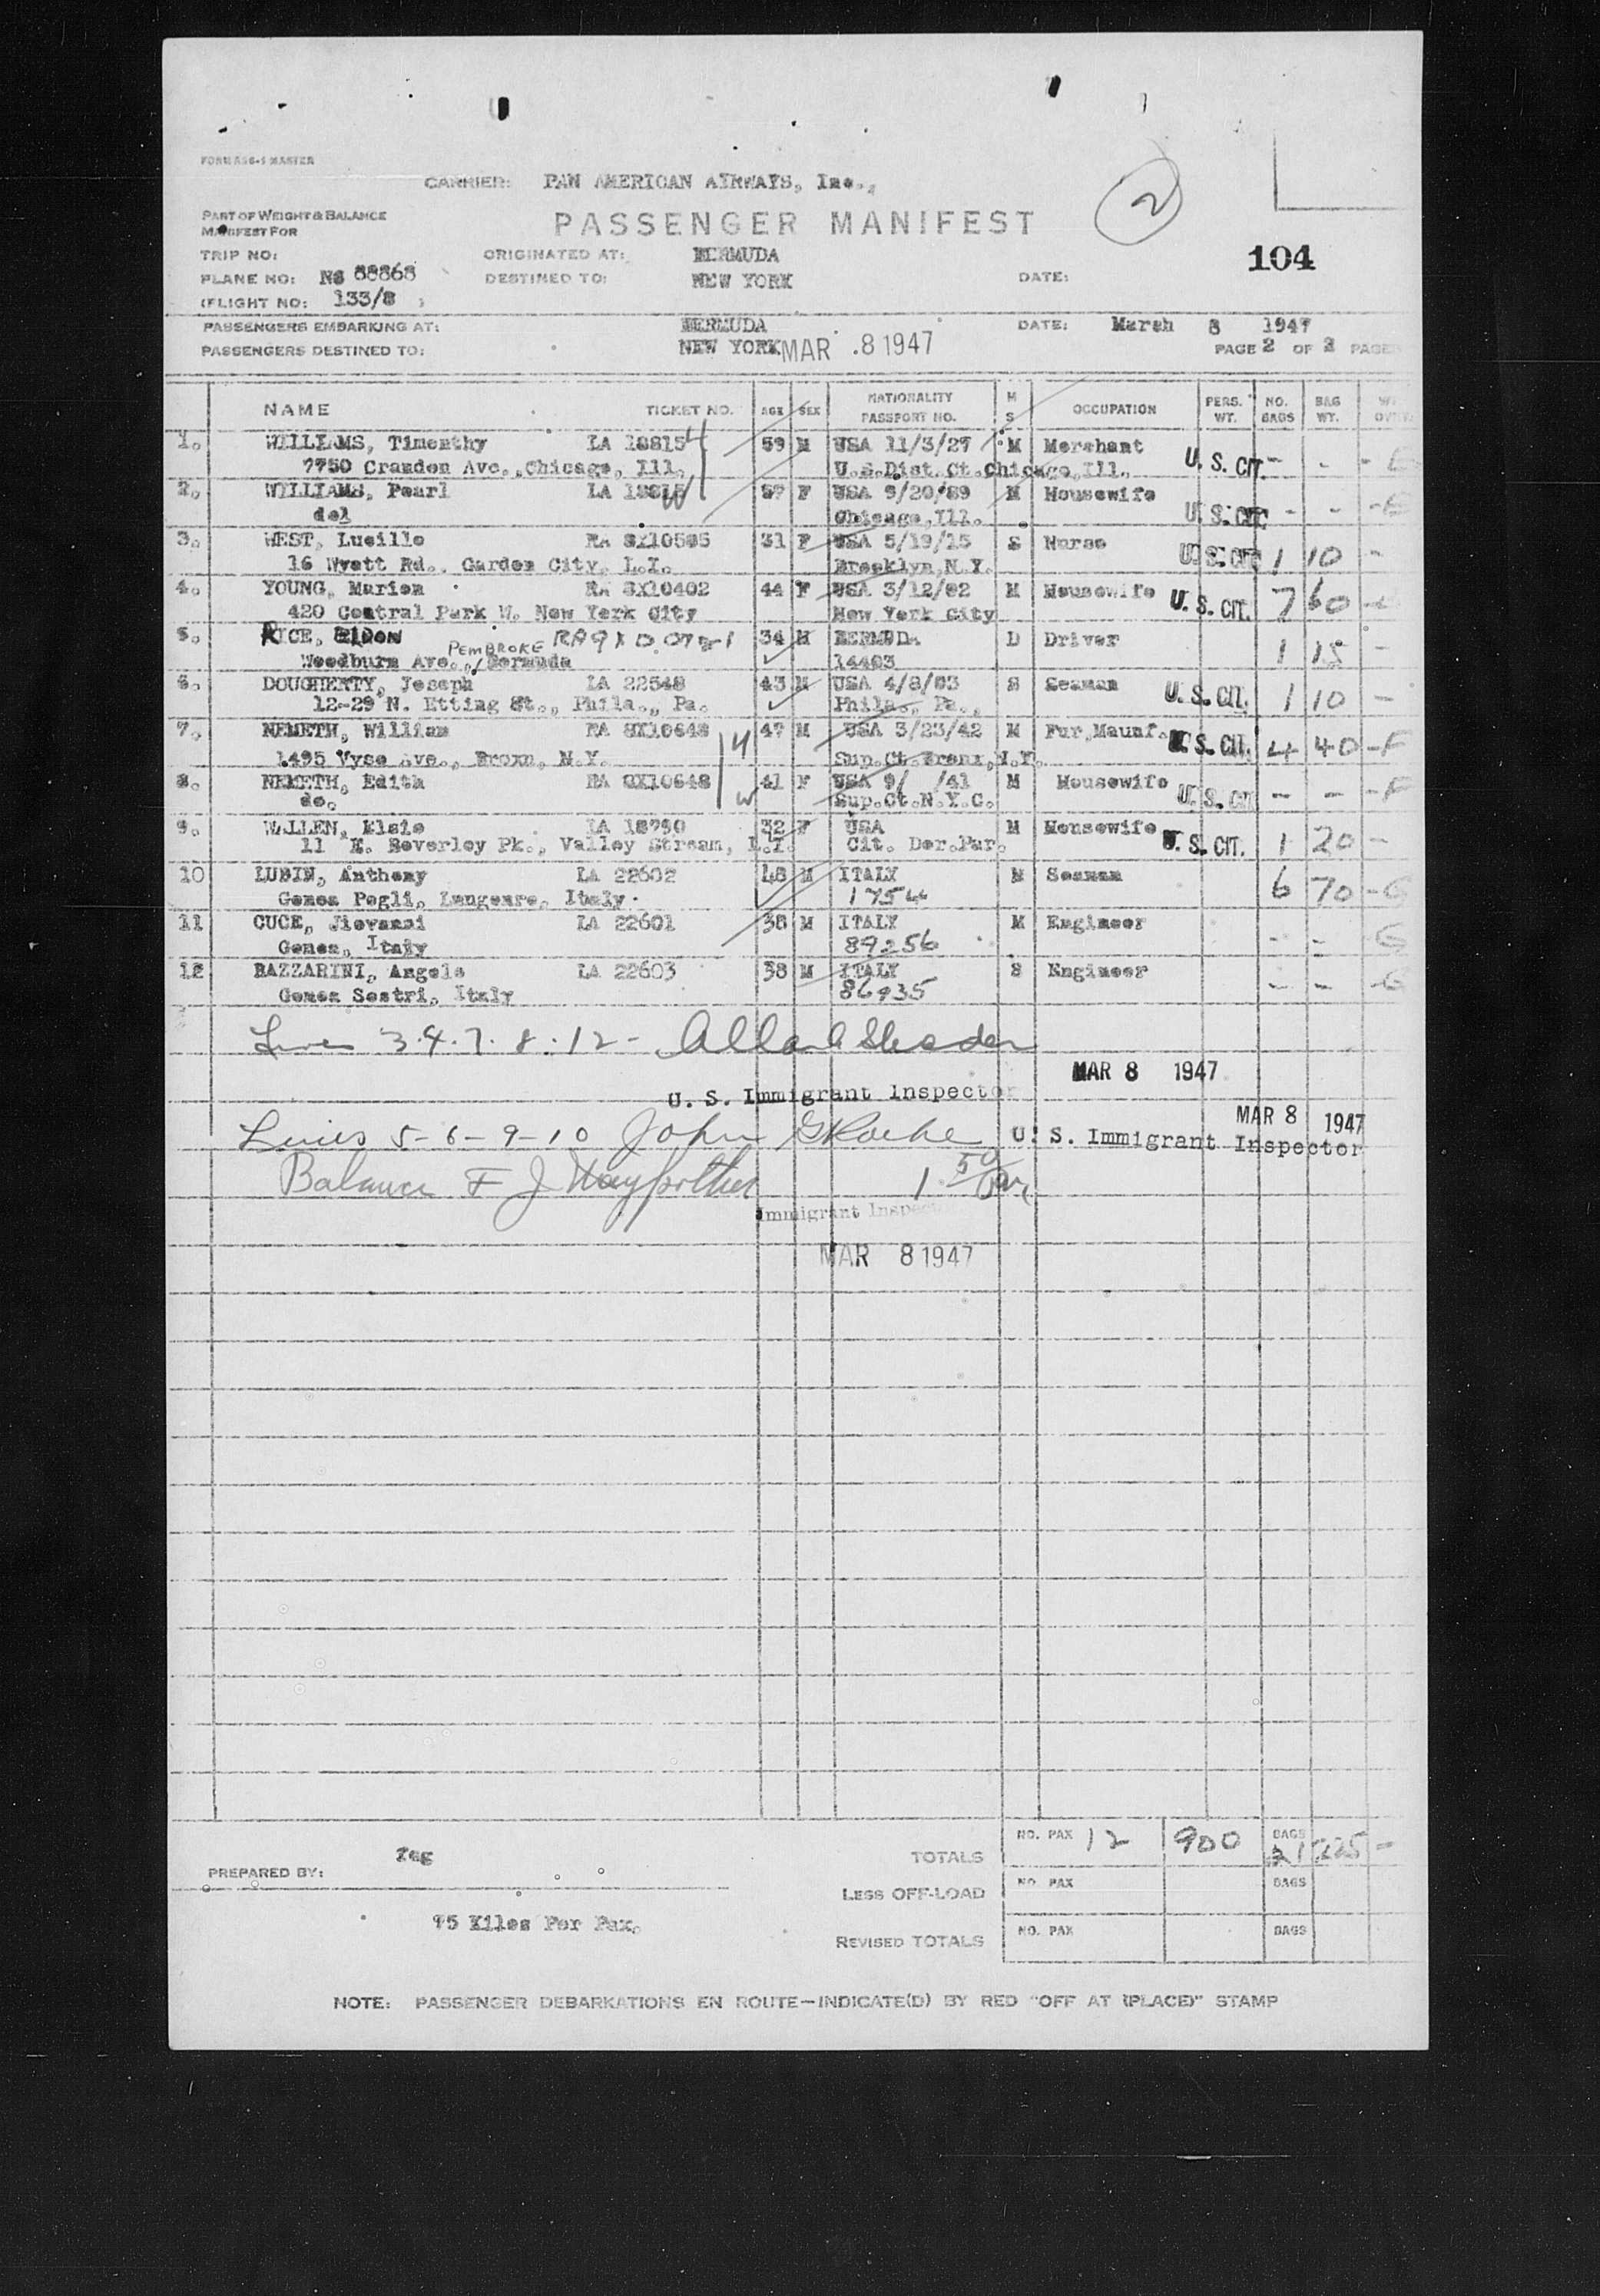 FORM A36-1 MASTER
CARRIER: PAN AMERICAN AIRWAYS, Inc.,
2
PART OF WEIGHT & BALANCE
MANIFEST FOR
PASSENGER MANIFEST
TRIP NO: ORIGINATED AT: BERMUDA 104
PLANE NO: NC 88868 DESTINED TO: NEW YORK DATE:
(FLIGHT NO: 133/8 )
PASSENGERS EMBARKING AT: BERMUDA DATE: March 8 1947
PASSENGERS DESTINED TO: NEW YORK MAR 8 1947 PAGE 2 OF 2 PAGES
NAME TICKET NO. AGE SEX NATIONALITY PASSPORT NO. M S OCCUPATION PERS. WT. NO. BAGS BAG WT.
1. WILLIAMS, Timonthy LA 18815 59 M USA 11/3/27 M Merchant U. S. CIT. - -
7750 Crandon Ave., Chicago, Ill. U.S.Dist.Ct.Chicago,Ill.
2. WILLIAMS, Pearl LA 18815 57 F USA 9/20/89 M Housewife U. S. CIT. - -
do1 Chicago,Ill.
3. WEST, Lucille RA 31 F USA 5/19/15 S Nurse U. S. CIT. 1 10 -
16 Wyatt Rd., Garden City, L.I. Brooklyn,N.Y.
4. YOUNG, Marion RA 8X10402 44 F USA 3/12/02 M Housewife U. S. CIT. 7 60 -
420 Central Park W. New York City New York City
5. RICE, RA9X0.07 34 M BERMUDA D Driver 1 15 -
Woodburn Ave., PEMBROKE / Bermuda 14403
6. DOUGHERTY, Joseph LA 22548 43 M USA 4/8/03 S Seaman U. S. CIT. 1 10 -
12-29 N. Etting St., Phila., Pa. Phila., Pa.,
7. NEMETH, William RA 8X10648 H 47 M USA 3/23/42 M Fur Maunf. U. S. CIT. 4 40 - F
1495 Vyse Ave., Bronx, N.Y. Sup.Ct.Bronx,N.Y.
8. NEMETH, Edith RA 8X10648 W 41 F USA 9/ /41 M Housewife U. S. CIT. - - - F
do. Sup.Ct.N.Y.C.
9. WALLEN, Elsie LA 18790 32 F USA M Housewife U. S. CIT. 1 20 -
11 E. Beverley Pk., Valley Stream, L.I. Cit. Der.Par.
10 LUBIN, Anthony LA 22602 48 M ITALY M Seaman 6 70 - G
Genoa Pegli, Lungeare, Italy. 1754
11 CUCE, Jiovanni LA 22601 38 M ITALY M Engineer - - G
Genoa, Italy 89256
12 BAZZARINI, Angelo LA 22603 38 M ITALY S Engineer - - - G
Genoa Sestri, Italy 86935
Lines 3.4.7.8.12 -
MAR 8 1947
U. S. Immigrant Inspector
Lines 5-6-9-10 John U. S. Immigrant Inspector MAR 8 1947
Balance F J
Immigrant Inspector
MAR 8 1947
PREPARED BY: TOTALS NO. PAX 12 900 BAGS 21 225 -
LESS OFF-LOAD NO. PAX BAGS
75 Kilos Per Pax.
REVISED TOTALS NO. PAX BAGS
NOTE: PASSENGER DEBARKATIONS EN ROUTE—INDICATE(D) BY RED "OFF AT (PLACE)" STAMP